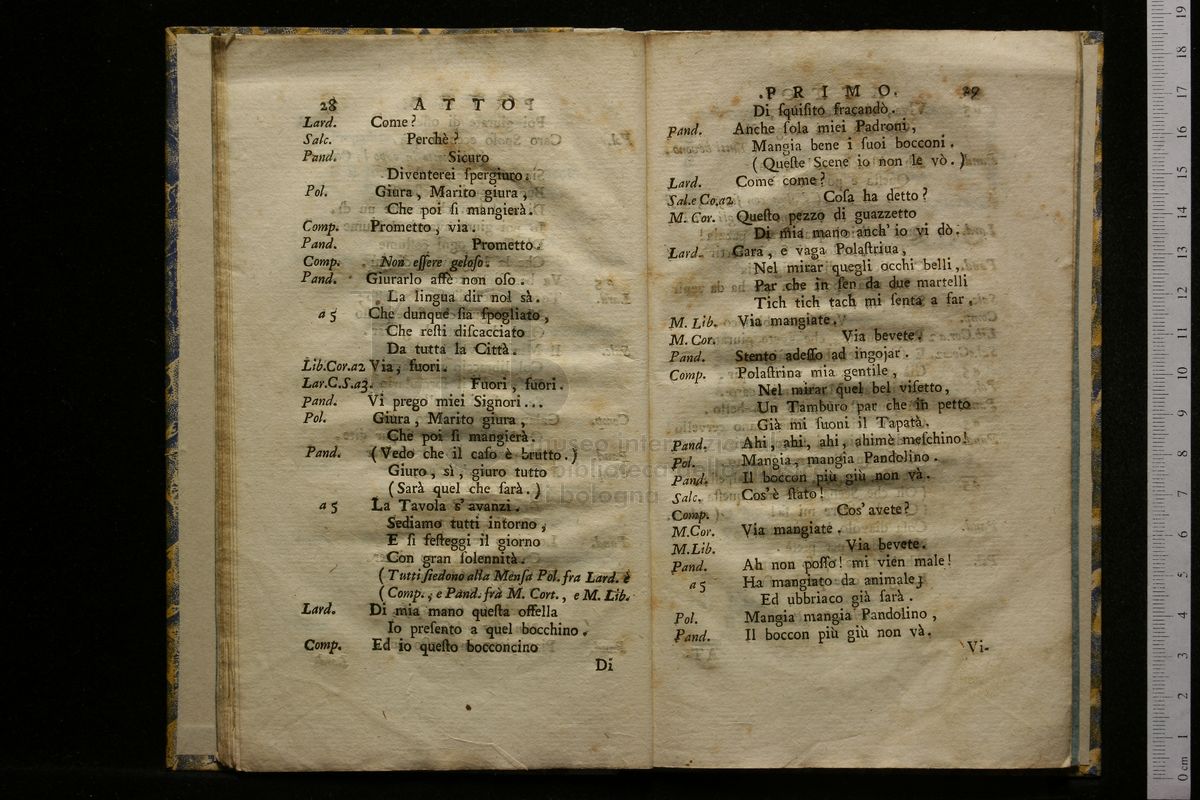 28 ATTO
Lard. Come?
Salc. Perchè?
Pand. Sicuro
Diventerei ſpergiuro.
Pol. Giura, Marito giura,
Che poi ſi mangierà.
Comp. Prometto, via.
Pand. Prometto.
Comp. Non eſſere geloſo.
Pand. Giurarlo affè non oſo.
La lingua dir nol sà.
a 5 Che dunque ſia ſpogliato,
Che reſti diſcacciato
Da tutta la Città.
Lib.Cor.a2 Via, fuori.
Lar.C.S.a3. Fuori, fuori.
Pand. Vi prego miei Signori...
Pol. Giura, Marito giura,
Che poi ſi mangierà.
Pand. (Vedo che il caſo è brutto.)
Giuro, sì, giuro tutto
(Sarà quel che ſarà.)
a 5 La Tavola s'avanzi.
Sediamo tutti intorno,
E ſi feſteggi il giorno
Con gran ſolennità.
(Tutti ſiedono alla Menſa Pol. fra Lard. e
(Comp., e Pand. frà M. Cort., e M. Lib.
Lard. Di mia mano queſta offella
Io preſento a quel bocchino.
Comp. Ed io queſto bocconcino
Di
PRIMO. 29
Di ſquiſito fracandò.
Pand. Anche ſola miei Padroni,
Mangia bene i ſuoi bocconi.
(Queſte Scene io non le vò.)
Lard. Come come?
Sal.e Co.a2 Coſa ha detto?
M. Cor. Queſto pezzo di guazzetto
Di mia mano anch'io vi dò.
Lard. Cara, e vaga Polaſtriua,
Nel mirar quegli occhi belli,
Par che in ſen da due martelli
Tich tich tach mi ſenta a far.
M. Lib. Via mangiate.
M. Cor. Via bevete.
Pand. Stento adeſſo ad ingojar.
Comp. Polaſtrina mia gentile,
Nel mirar quel bel viſetto,
Un Tamburo par che in petto
Già mi ſuoni il Tapatà.
Pand. Ahi, ahi, ahi, ahimè meſchino!
Pol. Mangia, mangia Pandolino.
Pand. Il boccon più giù non và.
Salc. Cos'è ſtato!
Comp. Cos'avete?
M.Cor. Via mangiate.
M.Lib. Via bevete.
Pand. Ah non poſſo! mi vien male!
a 5 Ha mangiato da animale,
Ed ubbriaco già ſarà.
Pol. Mangia mangia Pandolino,
Pand. Il boccon più giù non và.
Vi-